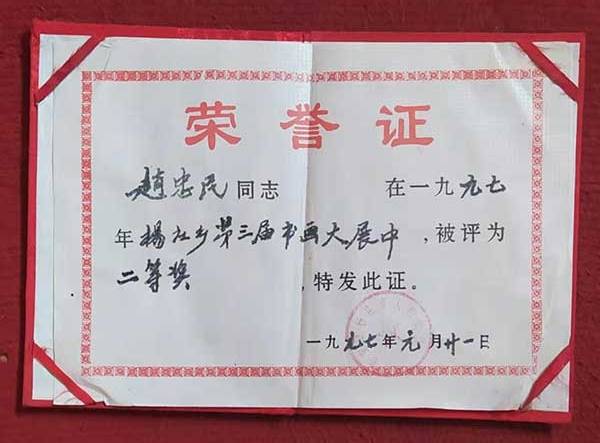 荣誉证
趙忠民同志 在一九九七
年楊庄乡第三届书画大展中，被评为
二等奖，特发此证。
一九九七年元月廿一日